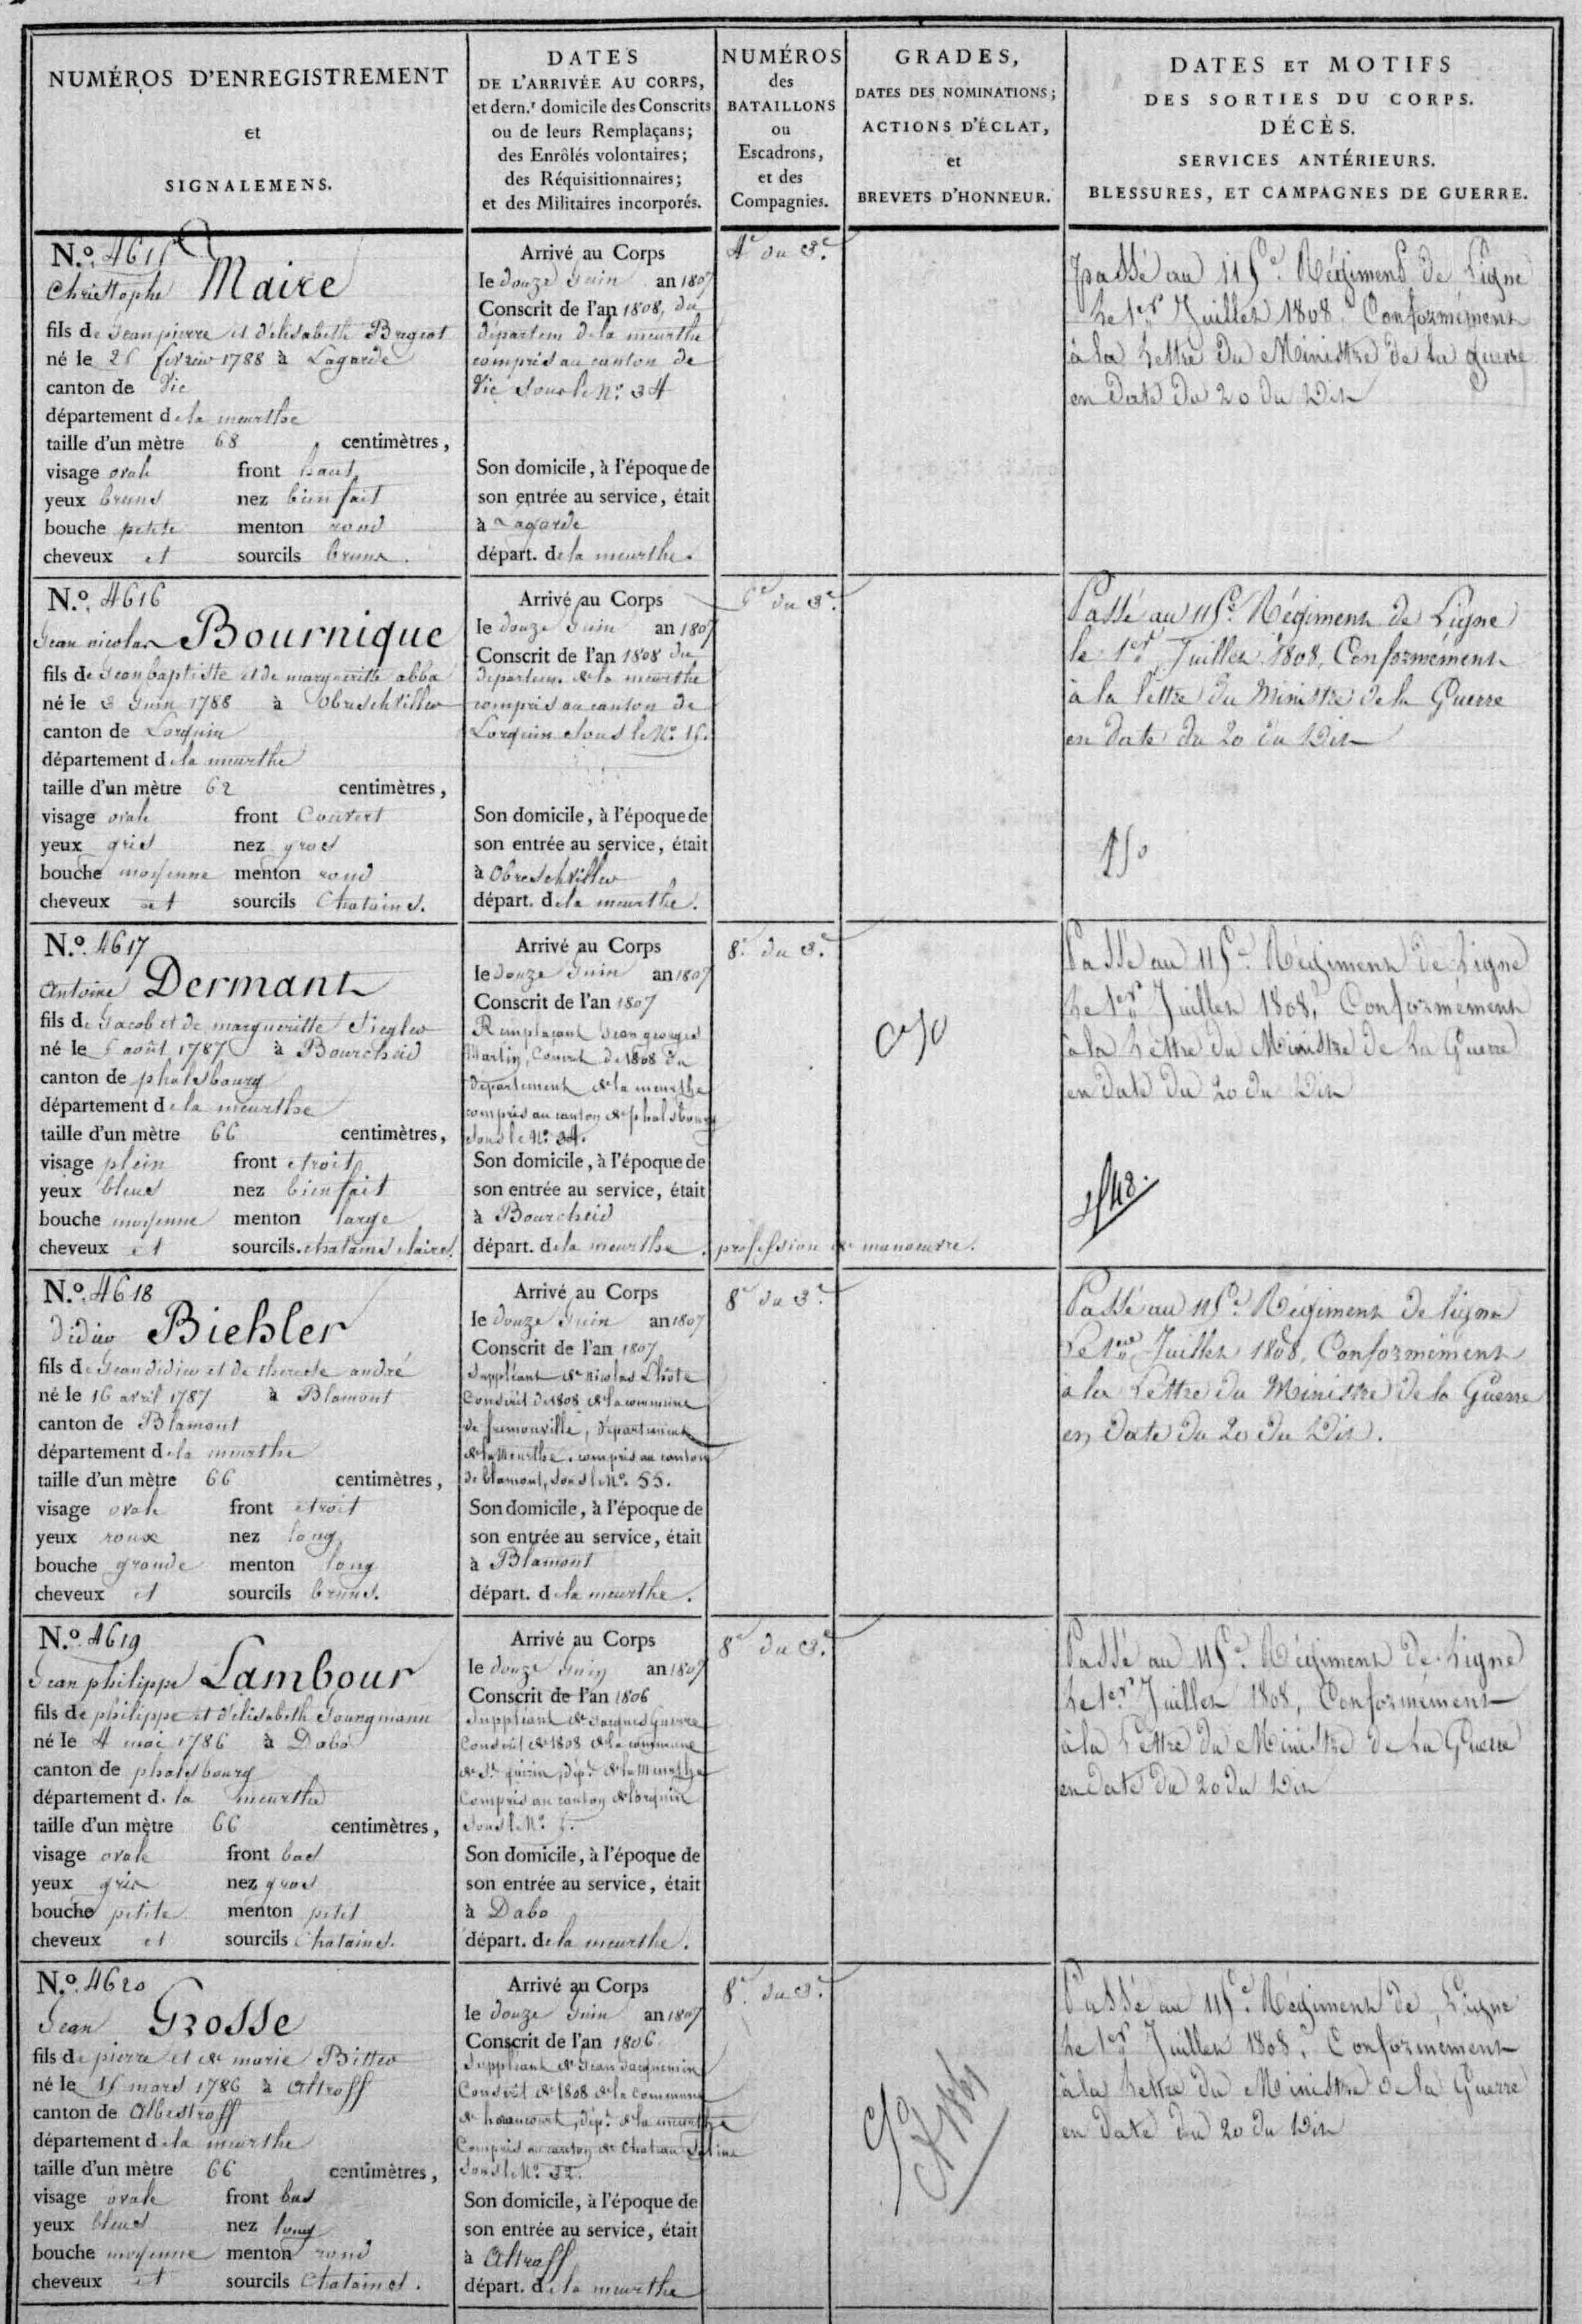 NUMÉROS D'ENREGISTREMENT
et
SIGNALEMENS.
DATES
DE L'ARRIVÉE AU CORPS,
et dern.r domicile des Conscrits
ou de leurs Remplaçans;
des Enrôlés volontaires;
des Réquisitionnaires;
et des Militaires incorporés.
NUMÉROS
des
BATAILLONS
ou
Escadrons,
et des
Compagnies.
GRADES,
DATES DES NOMINATIONS;
ACTIONS D'ÉCLAT,
et
BREVETS D'HONNEUR.
DATES ET MOTIFS
DES SORTIES DU CORPS.
DÉCÈS.
SERVICES ANTÉRIEURS.
BLESSURES, ET CAMPAGNES DE GUERRE.
N.o 4615
Christophe Maire
fils de Jean pierre et d'elisabeth Bregeot
né le 25 fevrier 1788 à Lagarde
canton de Vic
département de la meurthe
taille d'un mètre 68 centimètres,
visage ovale front haut
yeux bruns nez bien fait
bouche petite menton rond
cheveux et sourcils bruns.
Arrivé au Corps
le douze Juin an 1807
Conscrit de l'an 1808, du
départem de la meurthe
compris au canton de
Vic sous le No. 34
Son domicile, à l'époque de
son entrée au service, était
à Lagarde
départ. de la meurthe.
4e du 3e.
passé au 115e. Régiment de Ligne
Le 1er Juillet 1808, Conformément
à la Lettre du Ministre de la guerre
en date du 20 du Dit
N.o 4616
Jean nicolas Bournique
fils de Jean baptiste et de marguerite abba
né le 3 Juin 1788 à Obreschviller
canton de Lorquin
département de la meurthe
taille d'un mètre 62 centimètres,
visage ovale front Couvert
yeux gris nez gros
bouche moyenne menton rond
cheveux et sourcils Chatains.
Arrivé au Corps
le douze Juin an 1807
Conscrit de l'an 1808 du
departem. de la meurthe
compris au canton de
Lorquin sous le No. 15.
Son domicile, à l'époque de
son entrée au service, était
à Obreschviller
départ. de la meurthe.
du 3e.
Passé au 115e. Régiment de Ligne
le 1er Juillet 1808, Conformément
à la lettre du Ministre de la Guerre
en date du 20 du Dit
N.o 4617
Antoine Dermant
fils de Jacob et de margueritte Siegler
né le 5 août 1787 à Bourcheid
canton de phalsbourg
département de la meurthe
taille d'un mètre 66 centimètres,
visage plein front etroit
yeux bleus nez bien fait
bouche moyenne menton large
cheveux et sourcils. chatains claires.
Arrivé au Corps
le douze Juin an 1807
Conscrit de l'an 1807
Remplaçant Jean georges
Martin, Conscrit de 1808 du
departement de la meurthe
compris au canton de phalsbourg
sous le No. 34.
Son domicile, à l'époque de
son entrée au service, était
à Bourcheid
départ. de la meurthe. profession de manoeuvre.
8e. du 3e.
Passé au 115e. Régiment de Ligne
Le 1er Juillet 1808, Conformément
à la Lettre du Ministre de La Guerre
en date du 20 du Dit
N.o 4618
Didier Biehler
fils de Jean didier et de therese andré
né le 16 avril 1787 à Blamont
canton de Blamont
département de la meurthe
taille d'un mètre 66 centimètres,
visage ovale front etroit
yeux roux nez long
bouche grande menton long
cheveux et sourcils bruns.
Arrivé au Corps
le douze Juin an 1807
Conscrit de l'an 1807
Suppléant de nicolas Lhôte
Conscrit de 1808 de la commune
de fremonville, département
de la Meurthe, compris au canton
de blamont, sous le No. 55.
Son domicile, à l'époque de
son entrée au service, était
à Blamont
départ. de la meurthe.
8e du 3e.
Passé au 115e. Régiment de ligne
Le 1er Juillet 1808, Conformément
à la Lettre du Ministre de la Guerre
en Date du 20 du Dit.
N.o 4619
Jean philippe Lambour
fils de philippe et d'elisabeth Joungmann
né le 4 mai 1786 à Dabo
canton de phalsbourg
département de la meurthe
taille d'un mètre 66 centimètres,
visage ovale front bas
yeux gris nez gros
bouche petite menton petit
cheveux et sourcils Chatains.
Arrivé au Corps
le douze Juin an 1807
Conscrit de l'an 1806
Suppléant de Jacques guerre
Conscrit de 1808 de la commune
de St. quirin, dépt. de la Meurthe
Compris au canton de lorquin
sous le No. 5.
Son domicile, à l'époque de
son entrée au service, était
à Dabo
départ. de la meurthe.
8e du 3e.
Passé au 115e. Régiment de Ligne
Le 1er Juillet 1808, Conformément
à la Lettre du Ministre de La Guerre
en Date du 20 du Dit
N.o 4620
Jean Grosse
fils de pierre et de marie Bitter
né le 15 mars 1786 à Altroff
canton de Albestroff
département de la meurthe
taille d'un mètre 66 centimètres,
visage ovale front bas
yeux bleus nez long
bouche moyenne menton rond
cheveux et sourcils Chatains.
Arrivé au Corps
le douze Juin an 1807
Conscrit de l'an 1806
Suppléant de Jean Jacquemin
Conscrit de 1808 de la commune
de haraucourt, dépt. de la meurthe
Compris au canton de Chateau Salins
sous le No. 32.
Son domicile, à l'époque de
son entrée au service, était
à Altroff
départ. de la meurthe
8e. du 3e.
Passé au 115e. Régiment de Ligne
Le 1er Juillet 1808, Conformément
à la Lettre du Ministre de la Guerre
en date du 20 du Dit